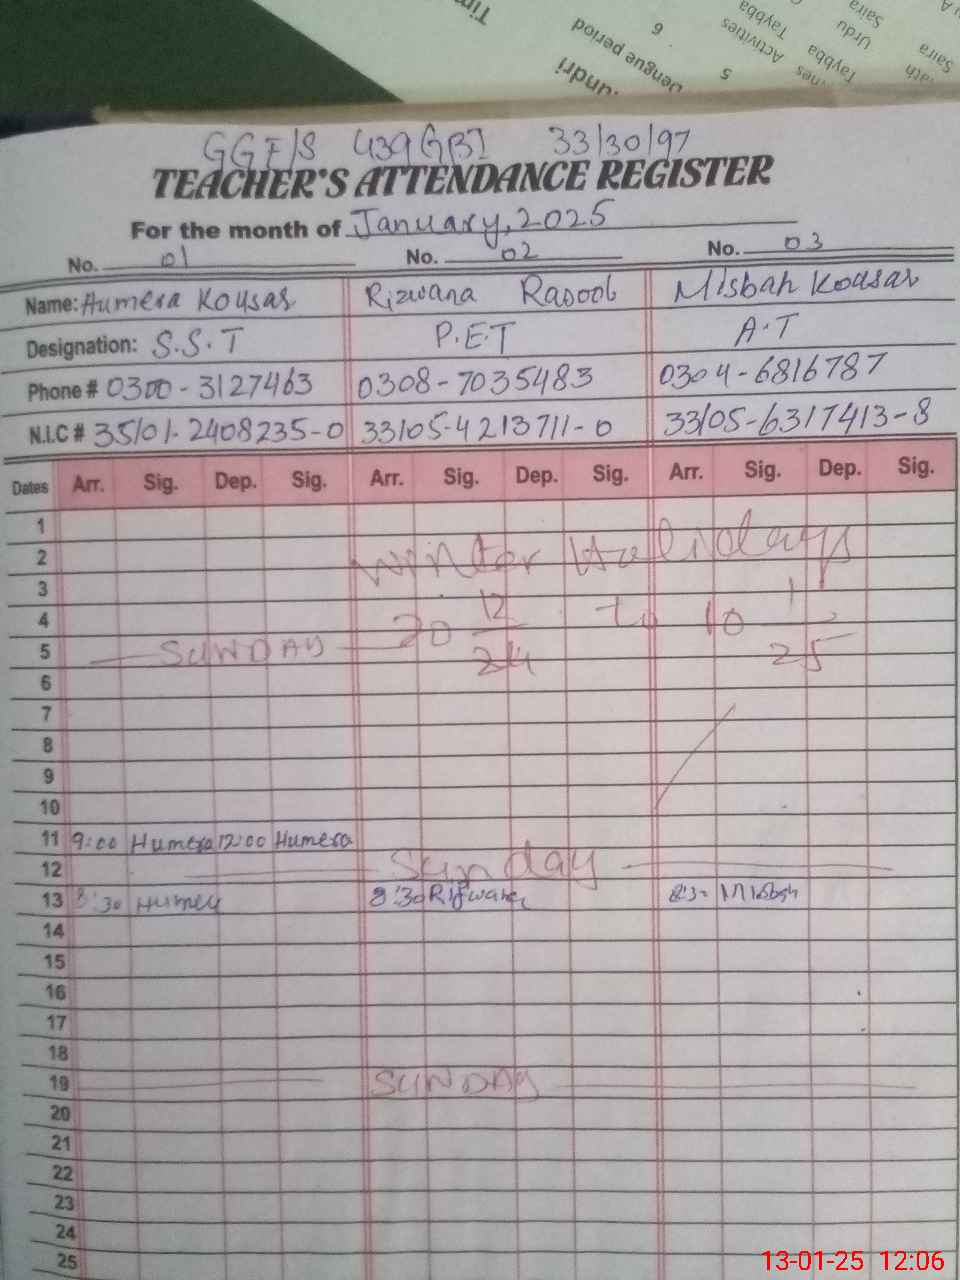 Tim
Saira
Urdu
Saira
Taybba
Taybba
Activities
6
5
Dengue period
GGE/S 439 GBI 33/30/97
TEACHER'S ATTENDANCE REGISTER
For the month of January, 2025
No. 01 No. 02 No. 03
Name: Humera Kousar Rizwana Rasool Misbah Kousar
Designation: S.S.T P.E.T A.T
Phone # 0300-3127463 0308-7035483 0304-6816787
N.I.C # 35101-2408235-0 33105-4213711-0 33105-6317413-8
Dates Arr. Sig. Dep. Sig. Arr. Sig. Dep. Sig. Arr. Sig. Dep. Sig.
1
2 Winter Holidays
3
4 20 12/24 to 10 1/25
5 SUNDAY
6
7
8
9
10
11 9:00 Humera 12:00 Humera
12 Sunday
13 8:30 Humera 8:30 Rizwana 8:30 Misbah
14
15
16
17
18
19 SUNDAY
20
21
22
23
24
25
13-01-25 12:06